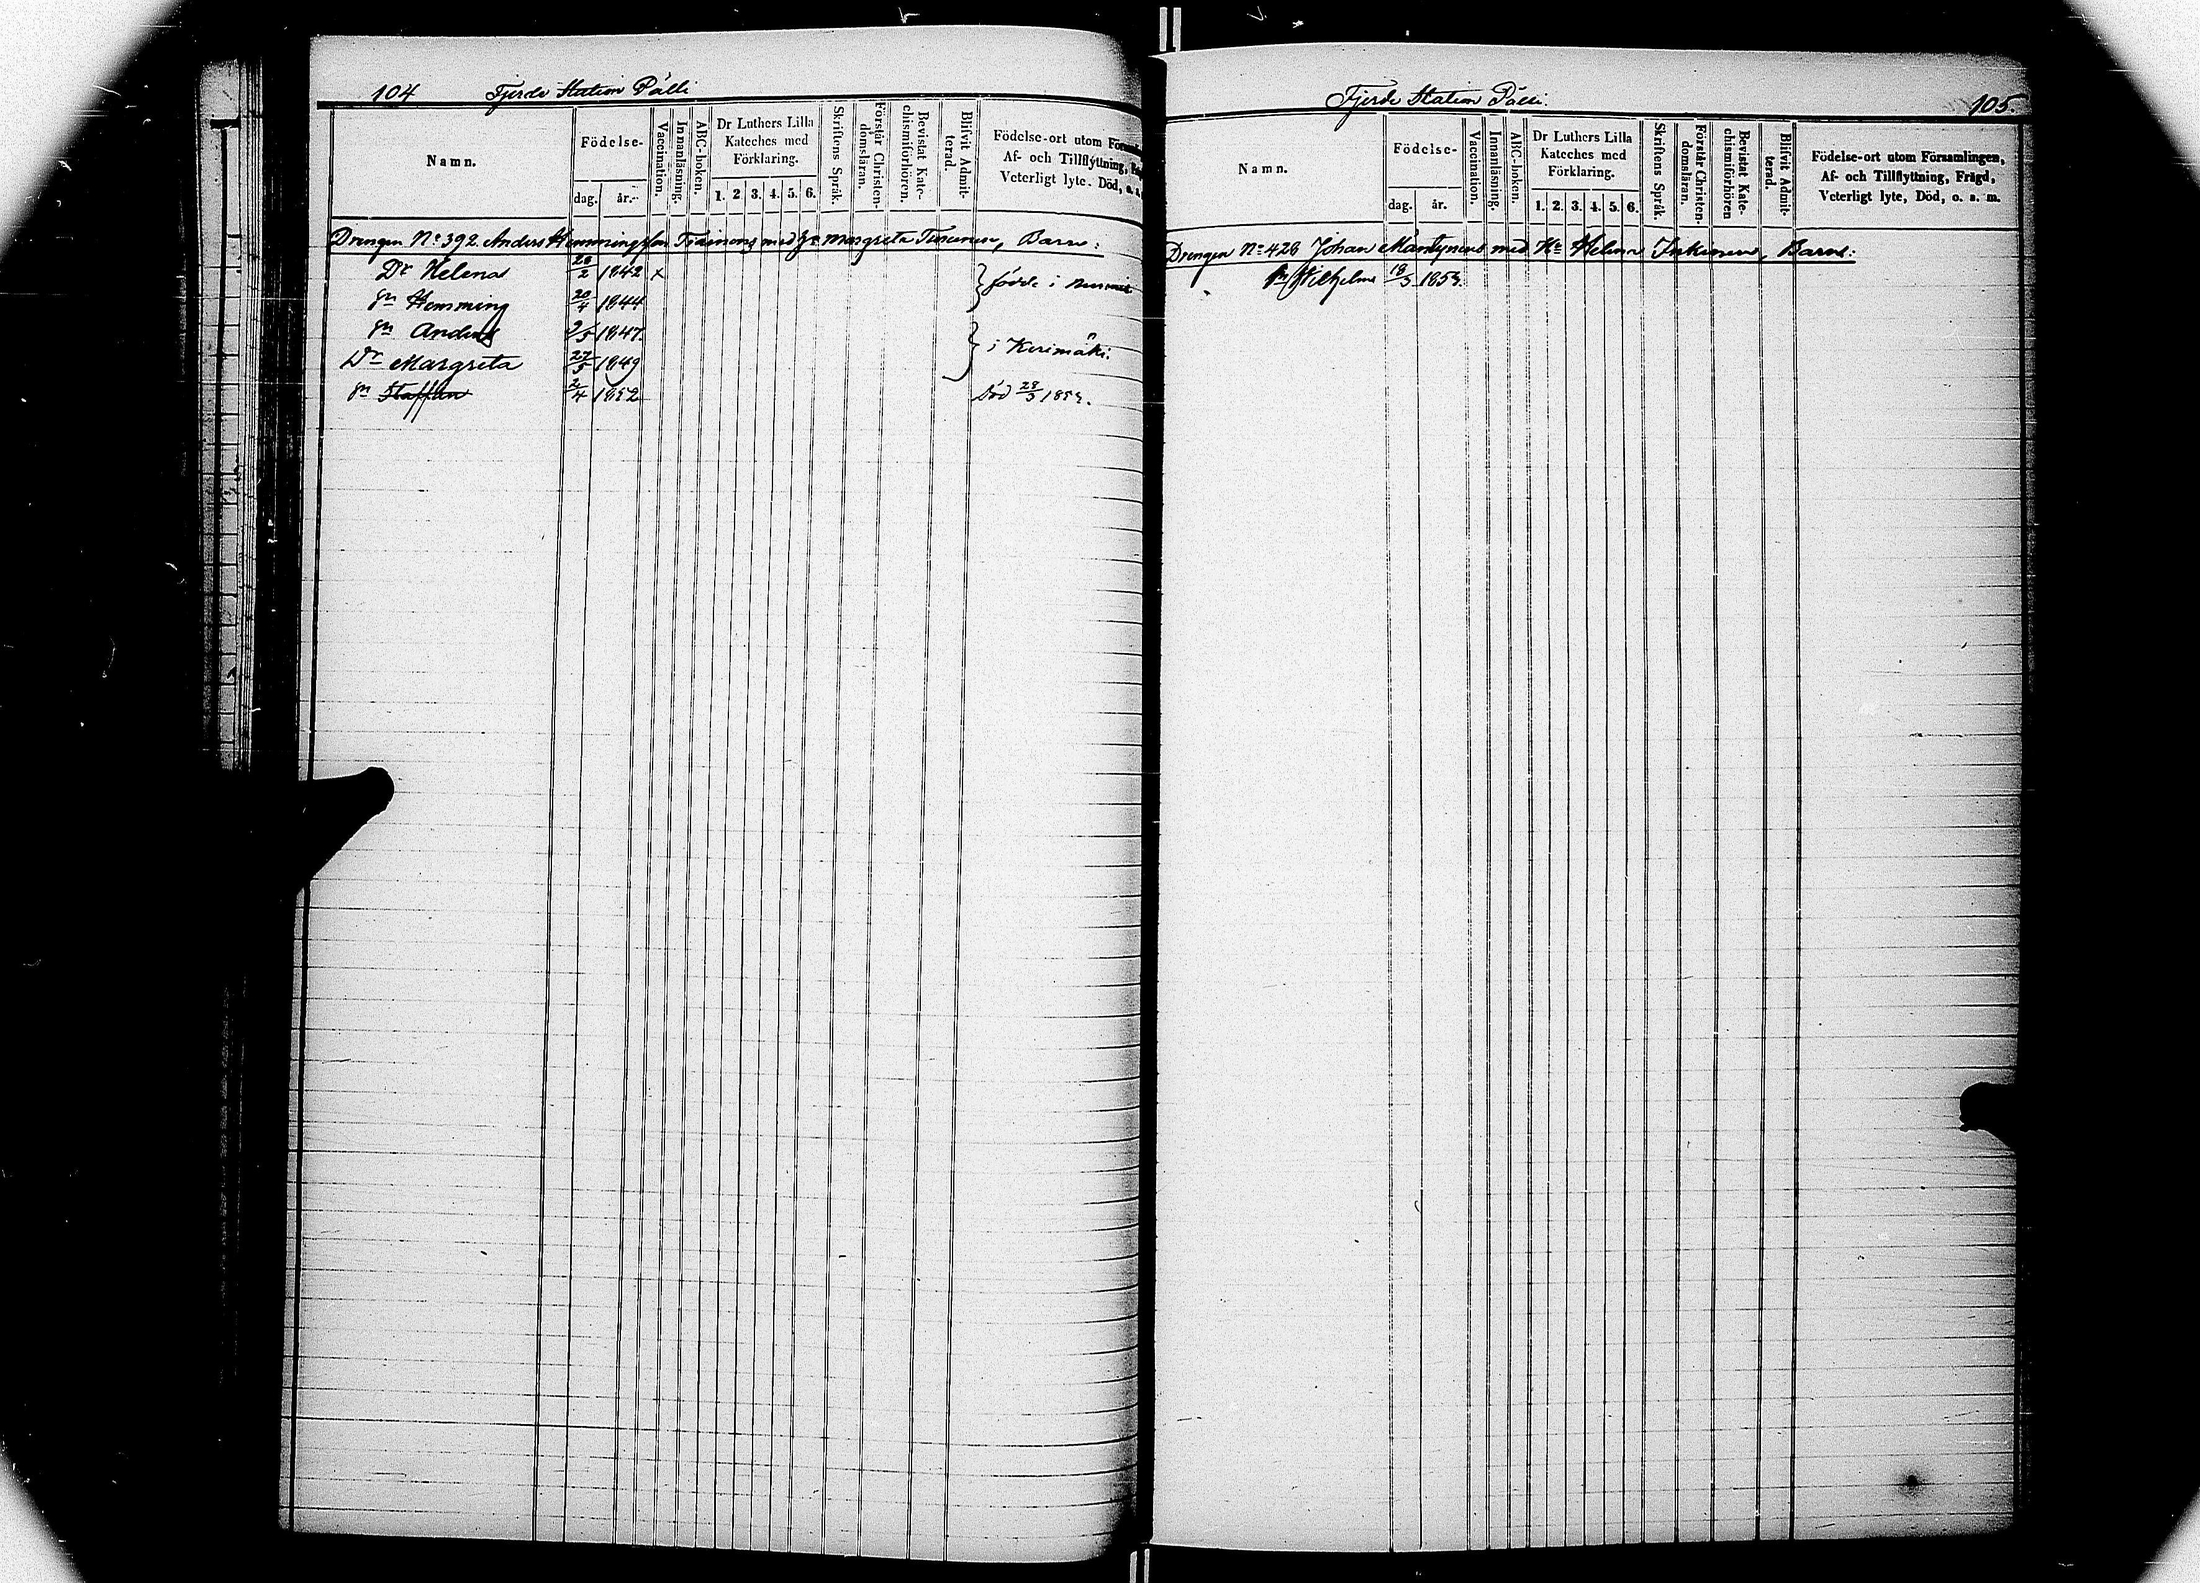 104 Fjerde Station Pälli
Namn.
Födelse-
dag. år.
Vaccination.
Innanläsning.
ABC-boken.
Dr Luthers Lilla
Kateches med
Förklaring.
1. 2. 3. 4. 5. 6.
Skriftens Språk.
Förstår Christen-
domsläran.
Bevistat Kate-
chismiförhören.
Blifvit Admit-
terad.
Födelse-ort utom
Af- och Tillflyttning,
Veterligt lyte. Död, o. s.
Drengen No 392 Anders Hemmingsson med Margreta Turunen, Barn:
Dr Helena 28/2 1842 x
Sn Hemming 20/4 1844
födde i
Sn Anders 9/5 1847.
Dr Margreta 27/5 1849
i Kerimäki.
Sn Staffan 2/4 1852 Död 28/3 1853.
Fjerde Station Pälli. 105.
Namn.
Födelse-
dag. år.
Vaccination.
Innanläsning.
ABC-boken.
Dr Luthers Lilla
Kateches med
Förklaring.
1. 2. 3. 4. 5. 6.
Skriftens Språk.
Förstår Christen-
domsläran.
Bevistat Kate-
chismiförhören
Blifvit Admit-
terad.
Födelse-ort utom Församlingen,
Af- och Tillflyttning, Frägd,
Veterligt lyte, Död, o. s. m.
Drengen No 426 Johan Mäntynen med Helena Inkinen, Barn:
Sn Wilhelm 18/3 1853.